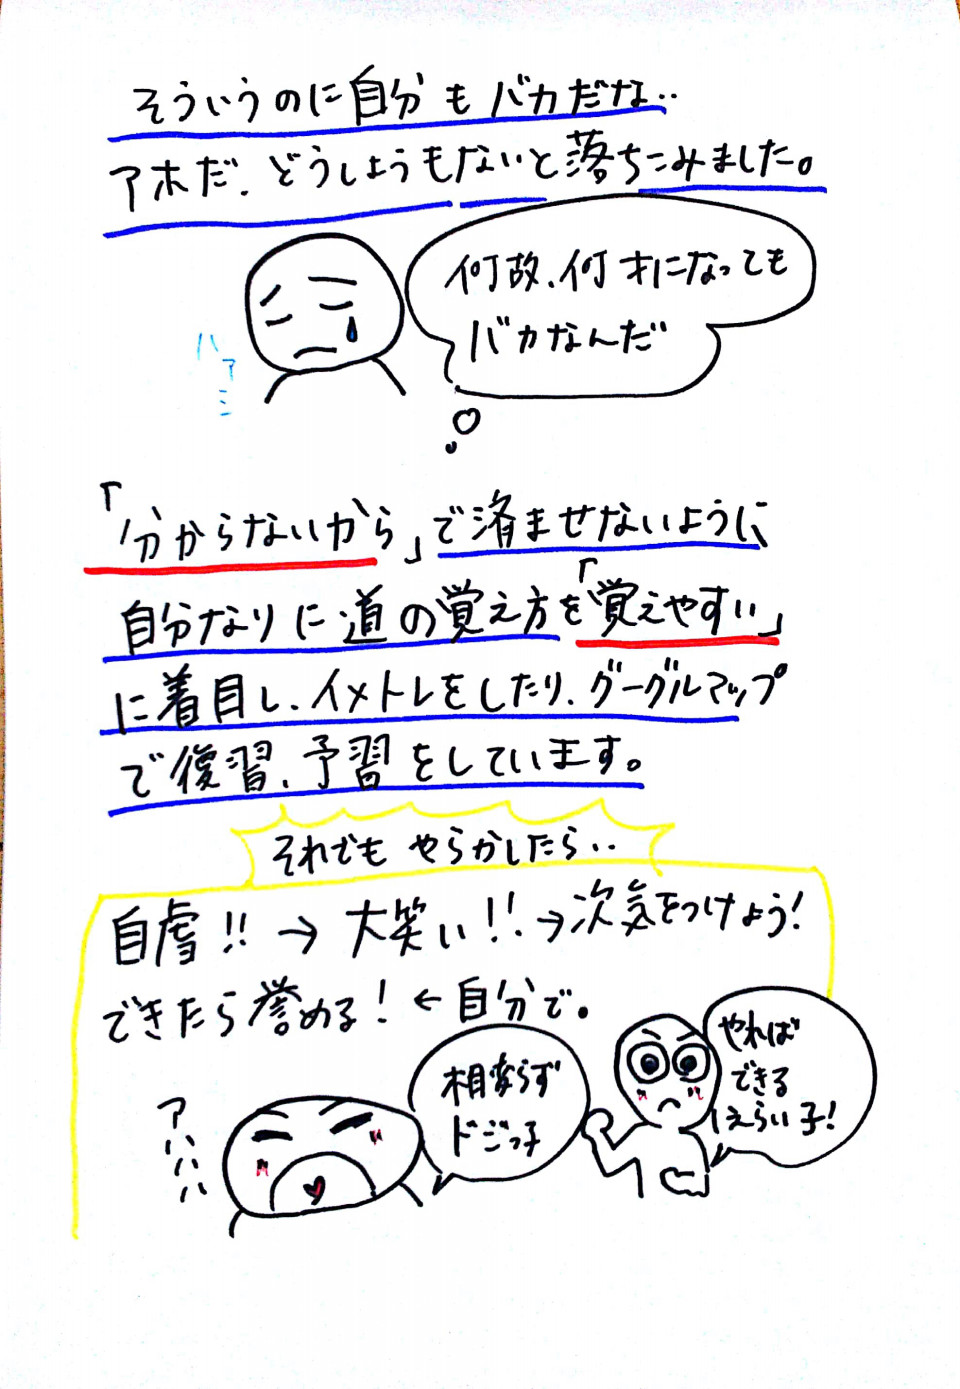 そういうのに自分もバカだな‥
アホだ、どうしようもないと落ちこみました。
何故、何才になっても
バカなんだ
ハァミ
「分からないから」で済ませないように
自分なりに道の覚え方を「覚えやすい」
に着目し、イメトレをしたり、グーグルマップ
で復習、予習をしています。
それでもやらかしたら‥
自虐!!→大笑い!!→次気をつけよう!
できたら誉める!←自分で。
相変らず
ドジっ子
アハハハ
やれば
できる
えらい子!